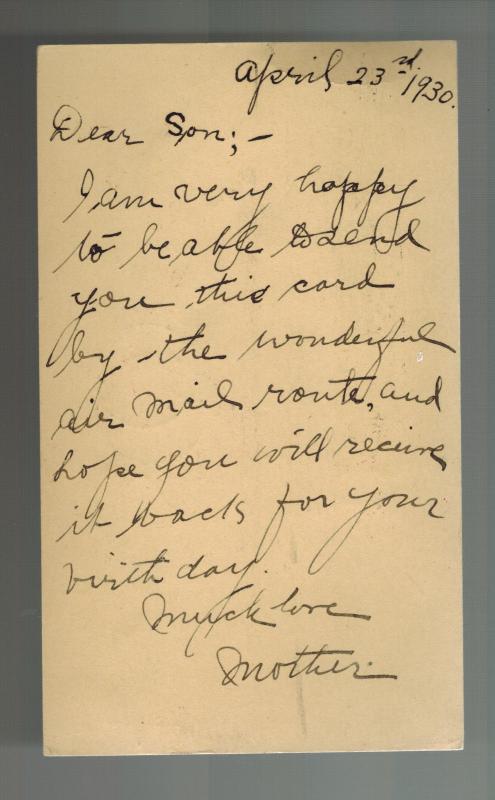 April 23rd. 1930.
Dear Son; –
I am very happy
to be able to send
you this card
by the wonderful
air mail route, and
hope you will receive
it back for your
birth day.
Much love
Mother.